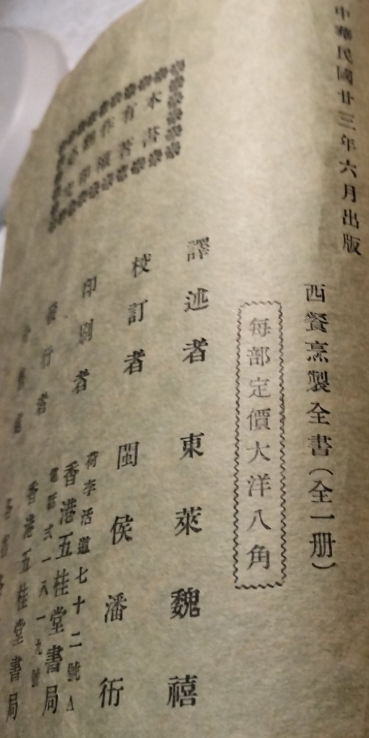 中華民國廿三年六月出版
西餐烹製全書（全一册）
每部定價大洋八角
譯述者 東萊魏禧
校訂者 閩侯潘衎
印刷者 荷李活道七十二號A
香港五桂堂書局
電話式一八一九號
發行者 香港五桂堂書局
本書
有著
作權